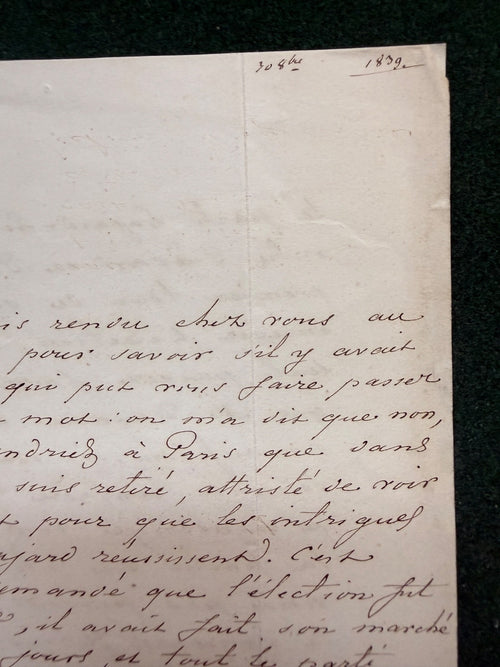 30 8bre 1839
is rendu chez vous au
pour savoir s'il y avait
qui put vous faire passer
mot : on m'a dit que non,
ndriez à Paris que dans
suis retiré, attristé de voir
t pour que les intrigues
jard réussissent. C'est
emandé que l'élection fut
, il avait fait son marché
jours, et tout le parti